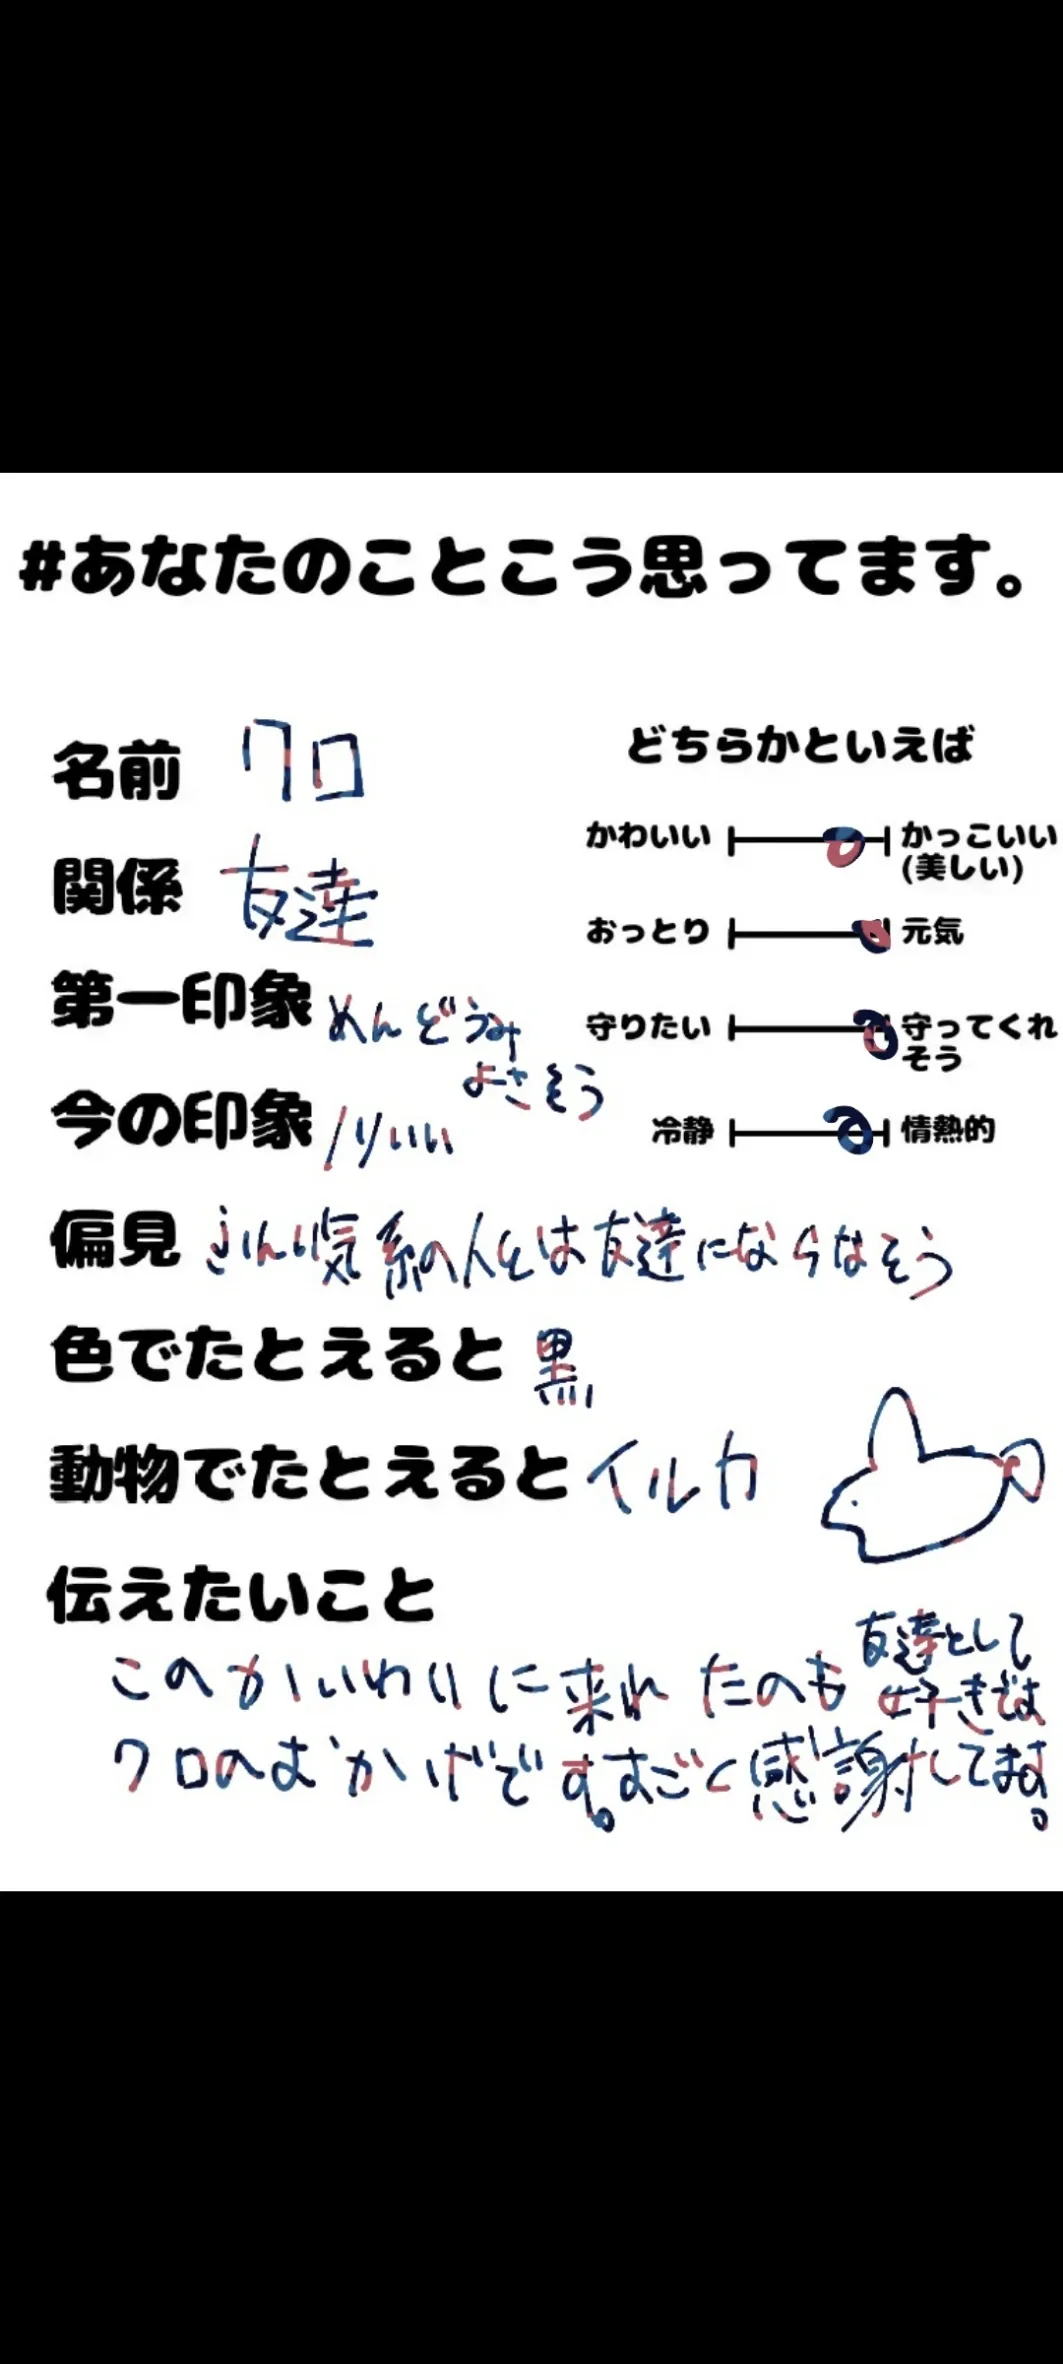 #あなたのことこう思ってます。
名前 クロ
関係 友達
第一印象 めんどうみ
よさそう
今の印象 ノリいい
偏見 いんき気系の人とは友達にならなそう
色でたとえると 黒
動物でたとえると イルカ
どちらかといえば
かわいい かっこいい
(美しい)
おっとり 元気
守りたい 守ってくれ
そう
冷静 情熱的
伝えたいこと
このかいわいに来れたのも
クロのおかげです。すごく感謝してます。
友達として
好きでは